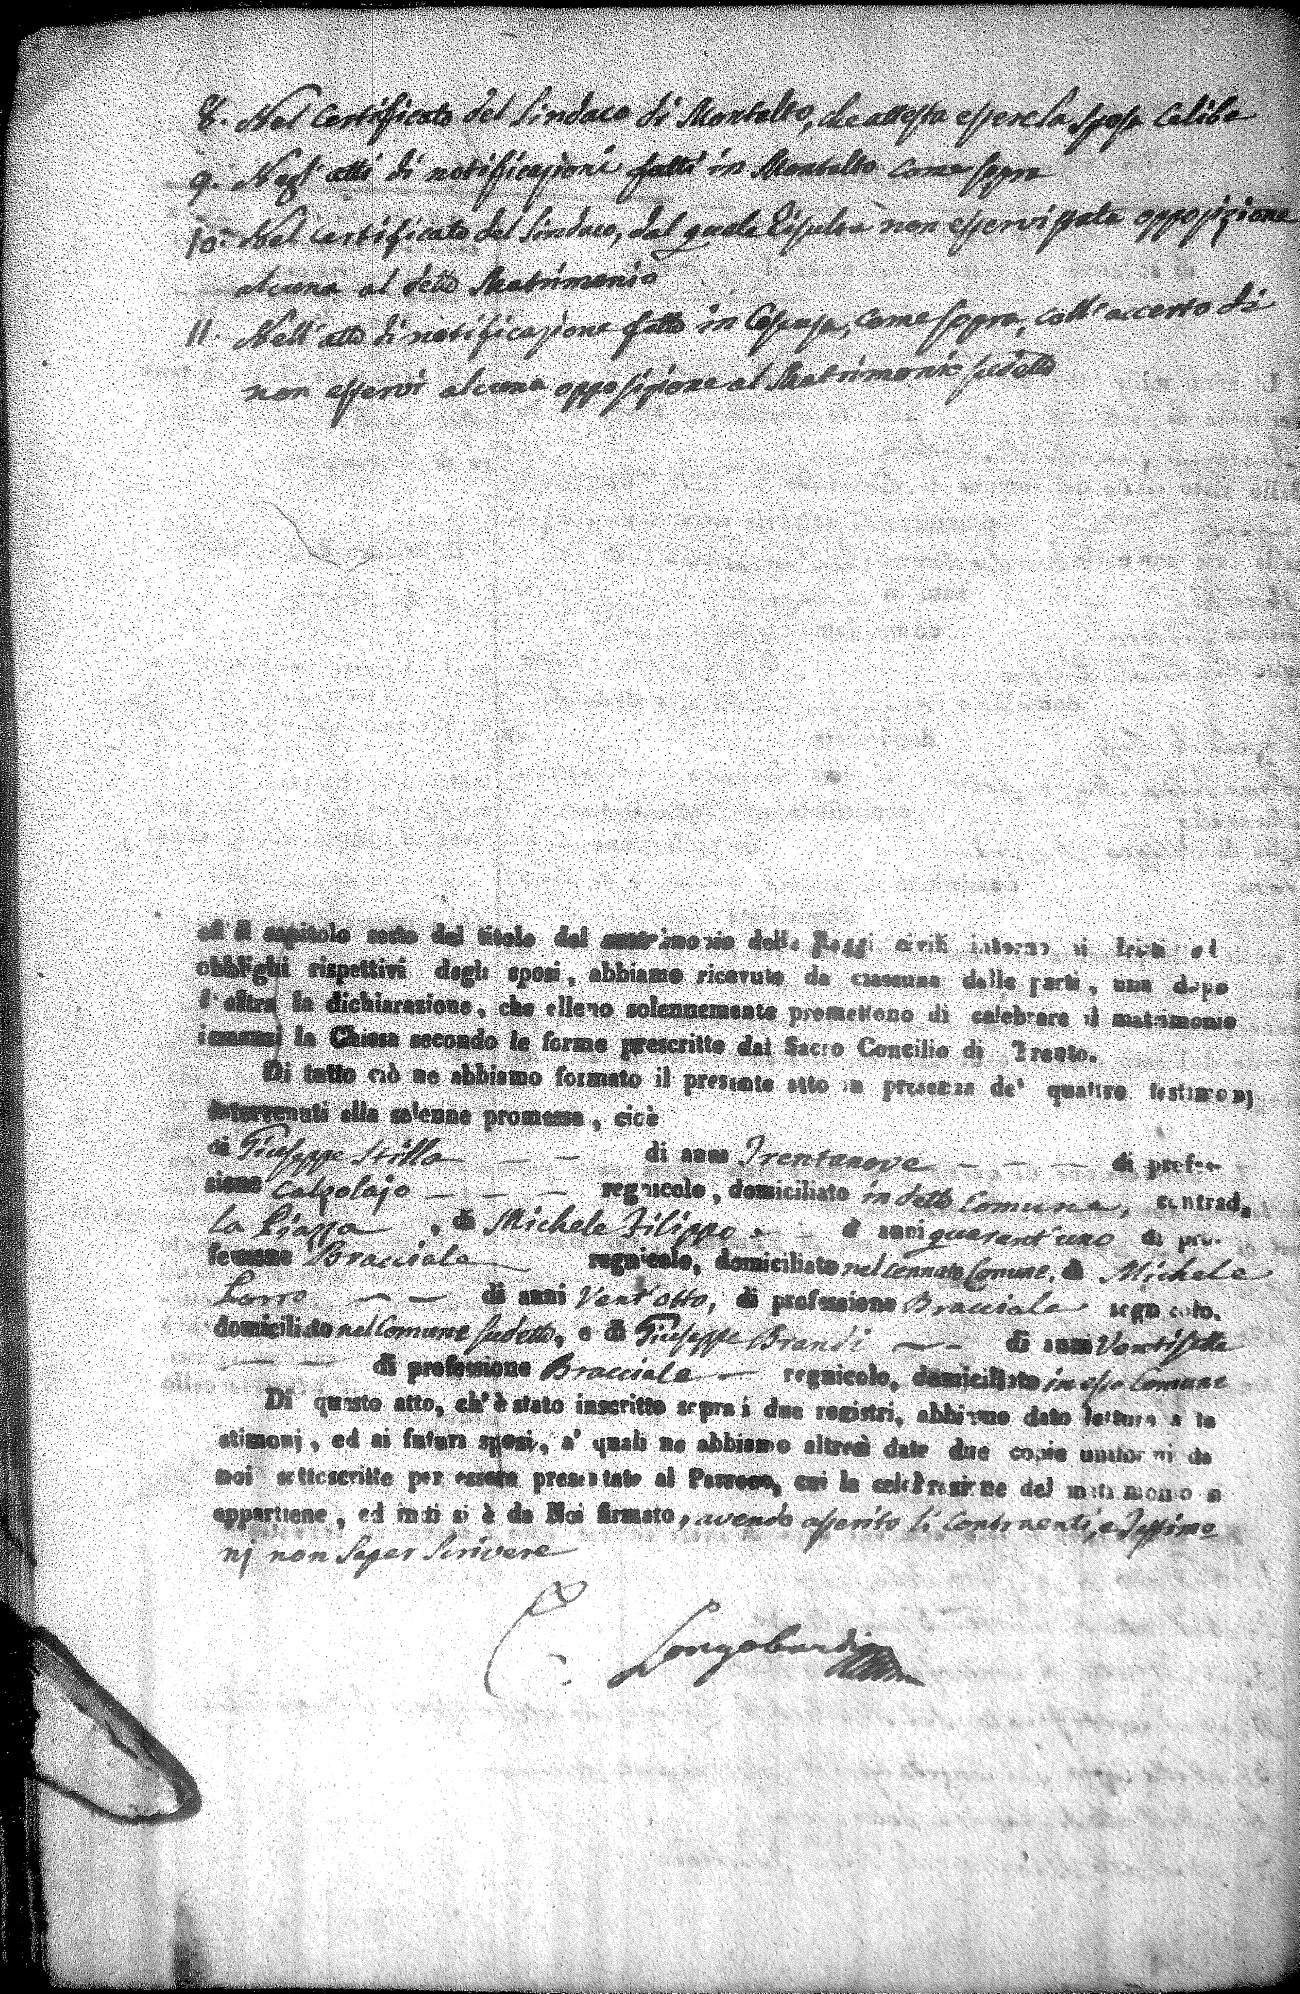 8. Nel Certificato del Sindaco di Montalto, che attesta essere la sposa Celibe
9. Negl'atti di notificazioni fatti in Montalto come sopra
10. Nel certificato del Sindaco, dal quale risulta non esservi stata opposizione
alcuna al detto Matrimonio
11. Nell'atto di notificazione fatto in , come sopra, coll'accerto di
non esservi alcuna opposizione al Matrimonio sudetto
ed il capitolo sesto del titolo del matrimonio delle Leggi civili intorno ai dritti ed
obblighi rispettivi degli sposi, abbiamo ricevuto da ciascuna delle parti, una dopo
l'altra la dichiarazione, che elleno solennemente promettono di celebrare il matrimonio
innanzi la Chiesa secondo le forme prescritte dal Sacro Concilio di Trento.
Di tutto ciò ne abbiamo formato il presente atto in presenza de' quattro testimonj
intervenuti alla solenne promessa, cioè
di Giuseppe Stillo — — di anni Trentanove — — — di profes-
sione Calzolajo — — — regnicolo, domiciliato in detto Comune, contrada
la Piazza , di Michele Filippo — — d anni quarant'uno di pro-
fessione Bracciale — regnicolo, domiciliato nel cennato Comune, di Michele
— — di anni Vent'otto, di professione Bracciale regnicolo,
domiciliato nel Comune sudetto, e di Giuseppe Brandi — — di anni Ventisette
— — di professione Bracciale — regnicolo, domiciliato in esso Comune
Di questo atto, ch'è stato inscritto sopra i due registri, abbiamo dato lettura a te
stimonj, ed ai futuri sposi, a' quali ne abbiamo altresì date due copie uniformi da
noi sottoscritte per essere presentate al Parroco, cui la celebrazione del matrimonio si
appartiene, ed indi si è da Noi firmato, avendo asserito li Contraenti, e Testimo
nj non saper scrivere
Longobardi